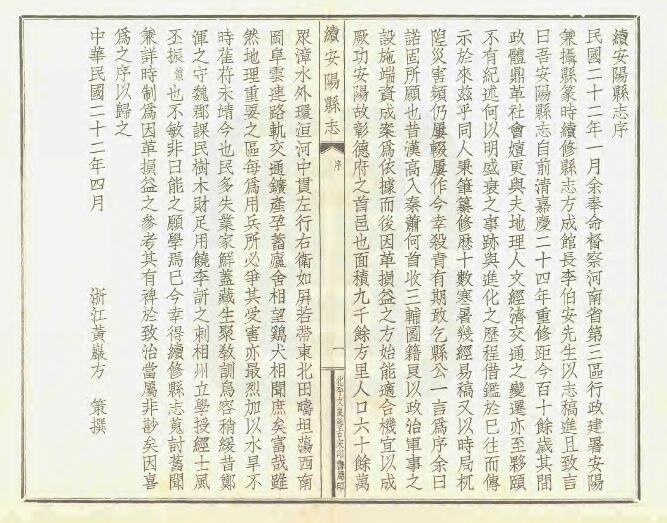 續安陽縣志序
民國二十二年一月余奉命督察河南省第三區行政建署安陽
兼攝縣篆時續修縣志方成館長李伯安先生以志稿進且致言
曰吾安陽縣志自前清嘉慶二十四年重修距今百十餘歲其間
政體鼎革社會嬗更與夫地理人文經濟交通之變遷亦至夥頤
不有紀述何以明盛衰之事跡與進化之歷程借鑑於已往而傳
示於來茲乎同人秉筆纂修歷十數寒暑幾經易稿又以時局杌
隉災害頻仍屢輟屢作今幸殺青有期敢乞縣公一言爲序余曰
諾固所願也昔漢高入秦蕭何首收三輔圖籍良以政治軍事之
設施端資成案爲依據而後因革損益之方始能適合機宜以成
厥功安陽故彰德府之首邑也面積九千餘方里人口六十餘萬
續安陽縣志
序
一
北平文嵐簃古宋印書局印
眾漳水外環洹河中貫左行右衛如屏若帶東北田疇坦蕩西南
岡阜雲連路軌交通鑛產孕蓄廬舍相望鷄犬相聞庶矣富哉雖
然地理重要之區每爲用兵所必爭其受害亦最烈加以水旱不
時萑苻未靖今也民多失業家鮮蓋藏生聚敎訓烏容稍緩昔鄭
渾之守魏郡課民樹木財足用饒李訢之刺相州立學授經士風
丕振 也不敏非曰能之願學焉巳今幸得續修縣志蒐討舊聞
兼詳時制爲因革損益之參考其有裨於致治當屬非尠矣因喜
爲之序以歸之
中華民國二十二年四月
浙江黃巖方 策撰